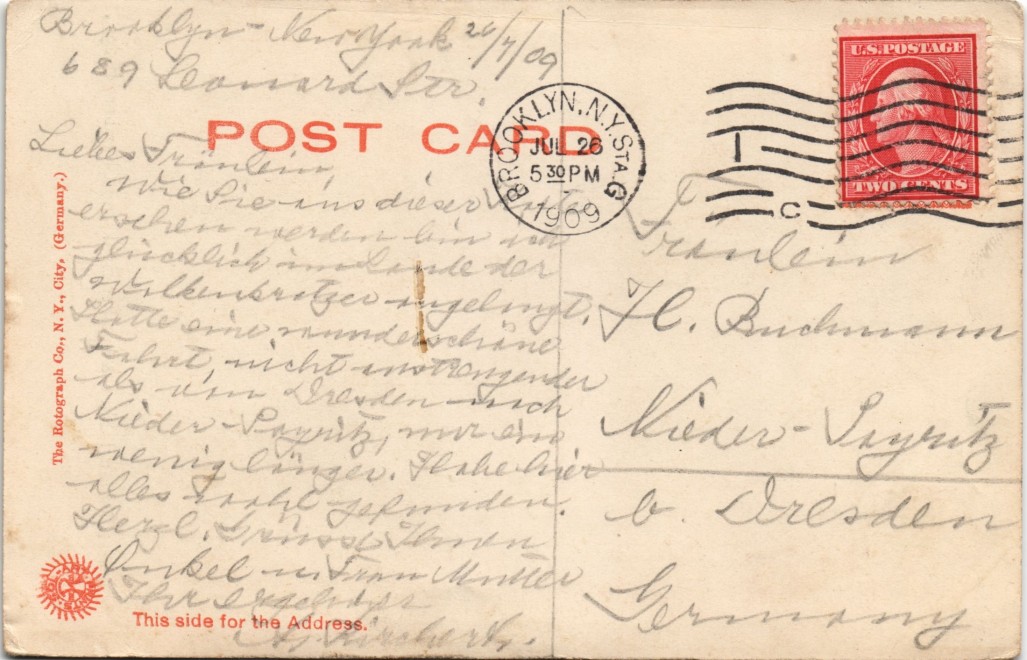 Brooklyn - New York 26/7/09
689 Leonard Str.
POST CARD
Liebes Fräulein,
Wie Sie aus dieser Karte
ersehen werden bin ich
glücklich im Lande der
Wolkenkratzer angelangt.
Hatte eine wunderschöne
Fahrt, nicht anstrengender
als von Dresden nach
Nieder-Poyritz, nur ein
wenig länger. Habe hier
alles wohl gefunden.
Herzl. Grüsse Ihnen
Onkel u. Frau Mutter
Ihr ergebener
This side for the Address.
The Rotograph Co., N. Y., City. (Germany.)
BROOKLYN, N.Y. STA. G
JUL 26
5 30 PM
1909
1
C
U.S. POSTAGE
TWO CENTS
Fräulein
H. Buchmann
Nieder-Poyritz
b. Dresden
Germany